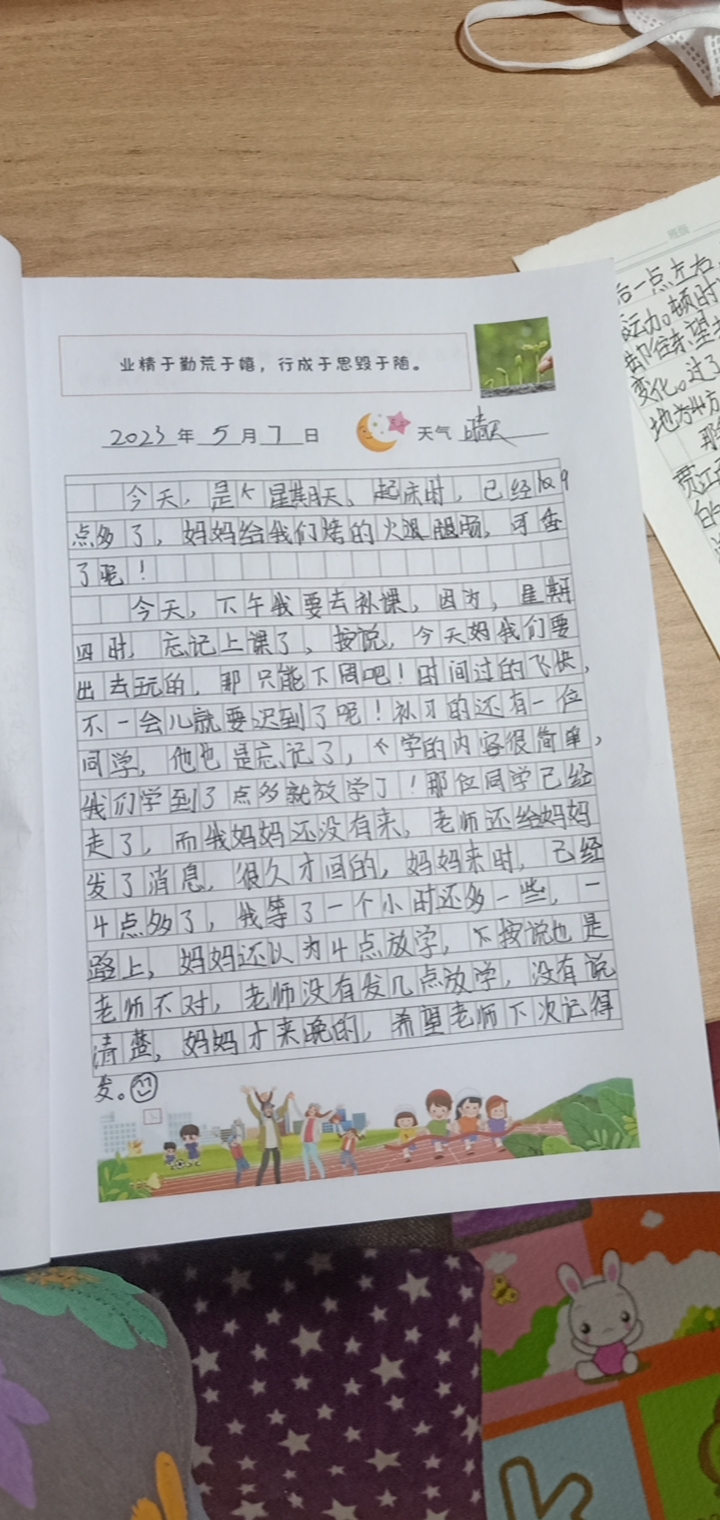 业精于勤荒于嬉，行成于思毁于随。
2023 年 5 月 7 日 天气 晴天
今天，是个星期天、起床时，已经9
点多了，妈妈给我们烤的火腿肠，可香
了呢！
今天，下午我要去补课，因为，星期
四时，忘记上课了、按说，今天妈我们要
出去玩的，那只能下周吧！时间过的飞快，
不一会儿就要迟到了呢！补习的还有一位
同学，他也是忘记了，个学的内容很简单，
我们学到3点多就放学了！那位同学已经
走了，而我妈妈还没有来，老师还给妈妈
发了消息，很久才回的，妈妈来时，已经
4点多了，我等了一个小时还多一些，一
路上，妈妈还以为4点放学，不按说也是
老师不对，老师没有发几点放学，没有说
清楚，妈妈才来晚的，希望老师下次记得
发。
班级
后一点左右
运动。顿时
却往东望去
变化。过了
地方
那